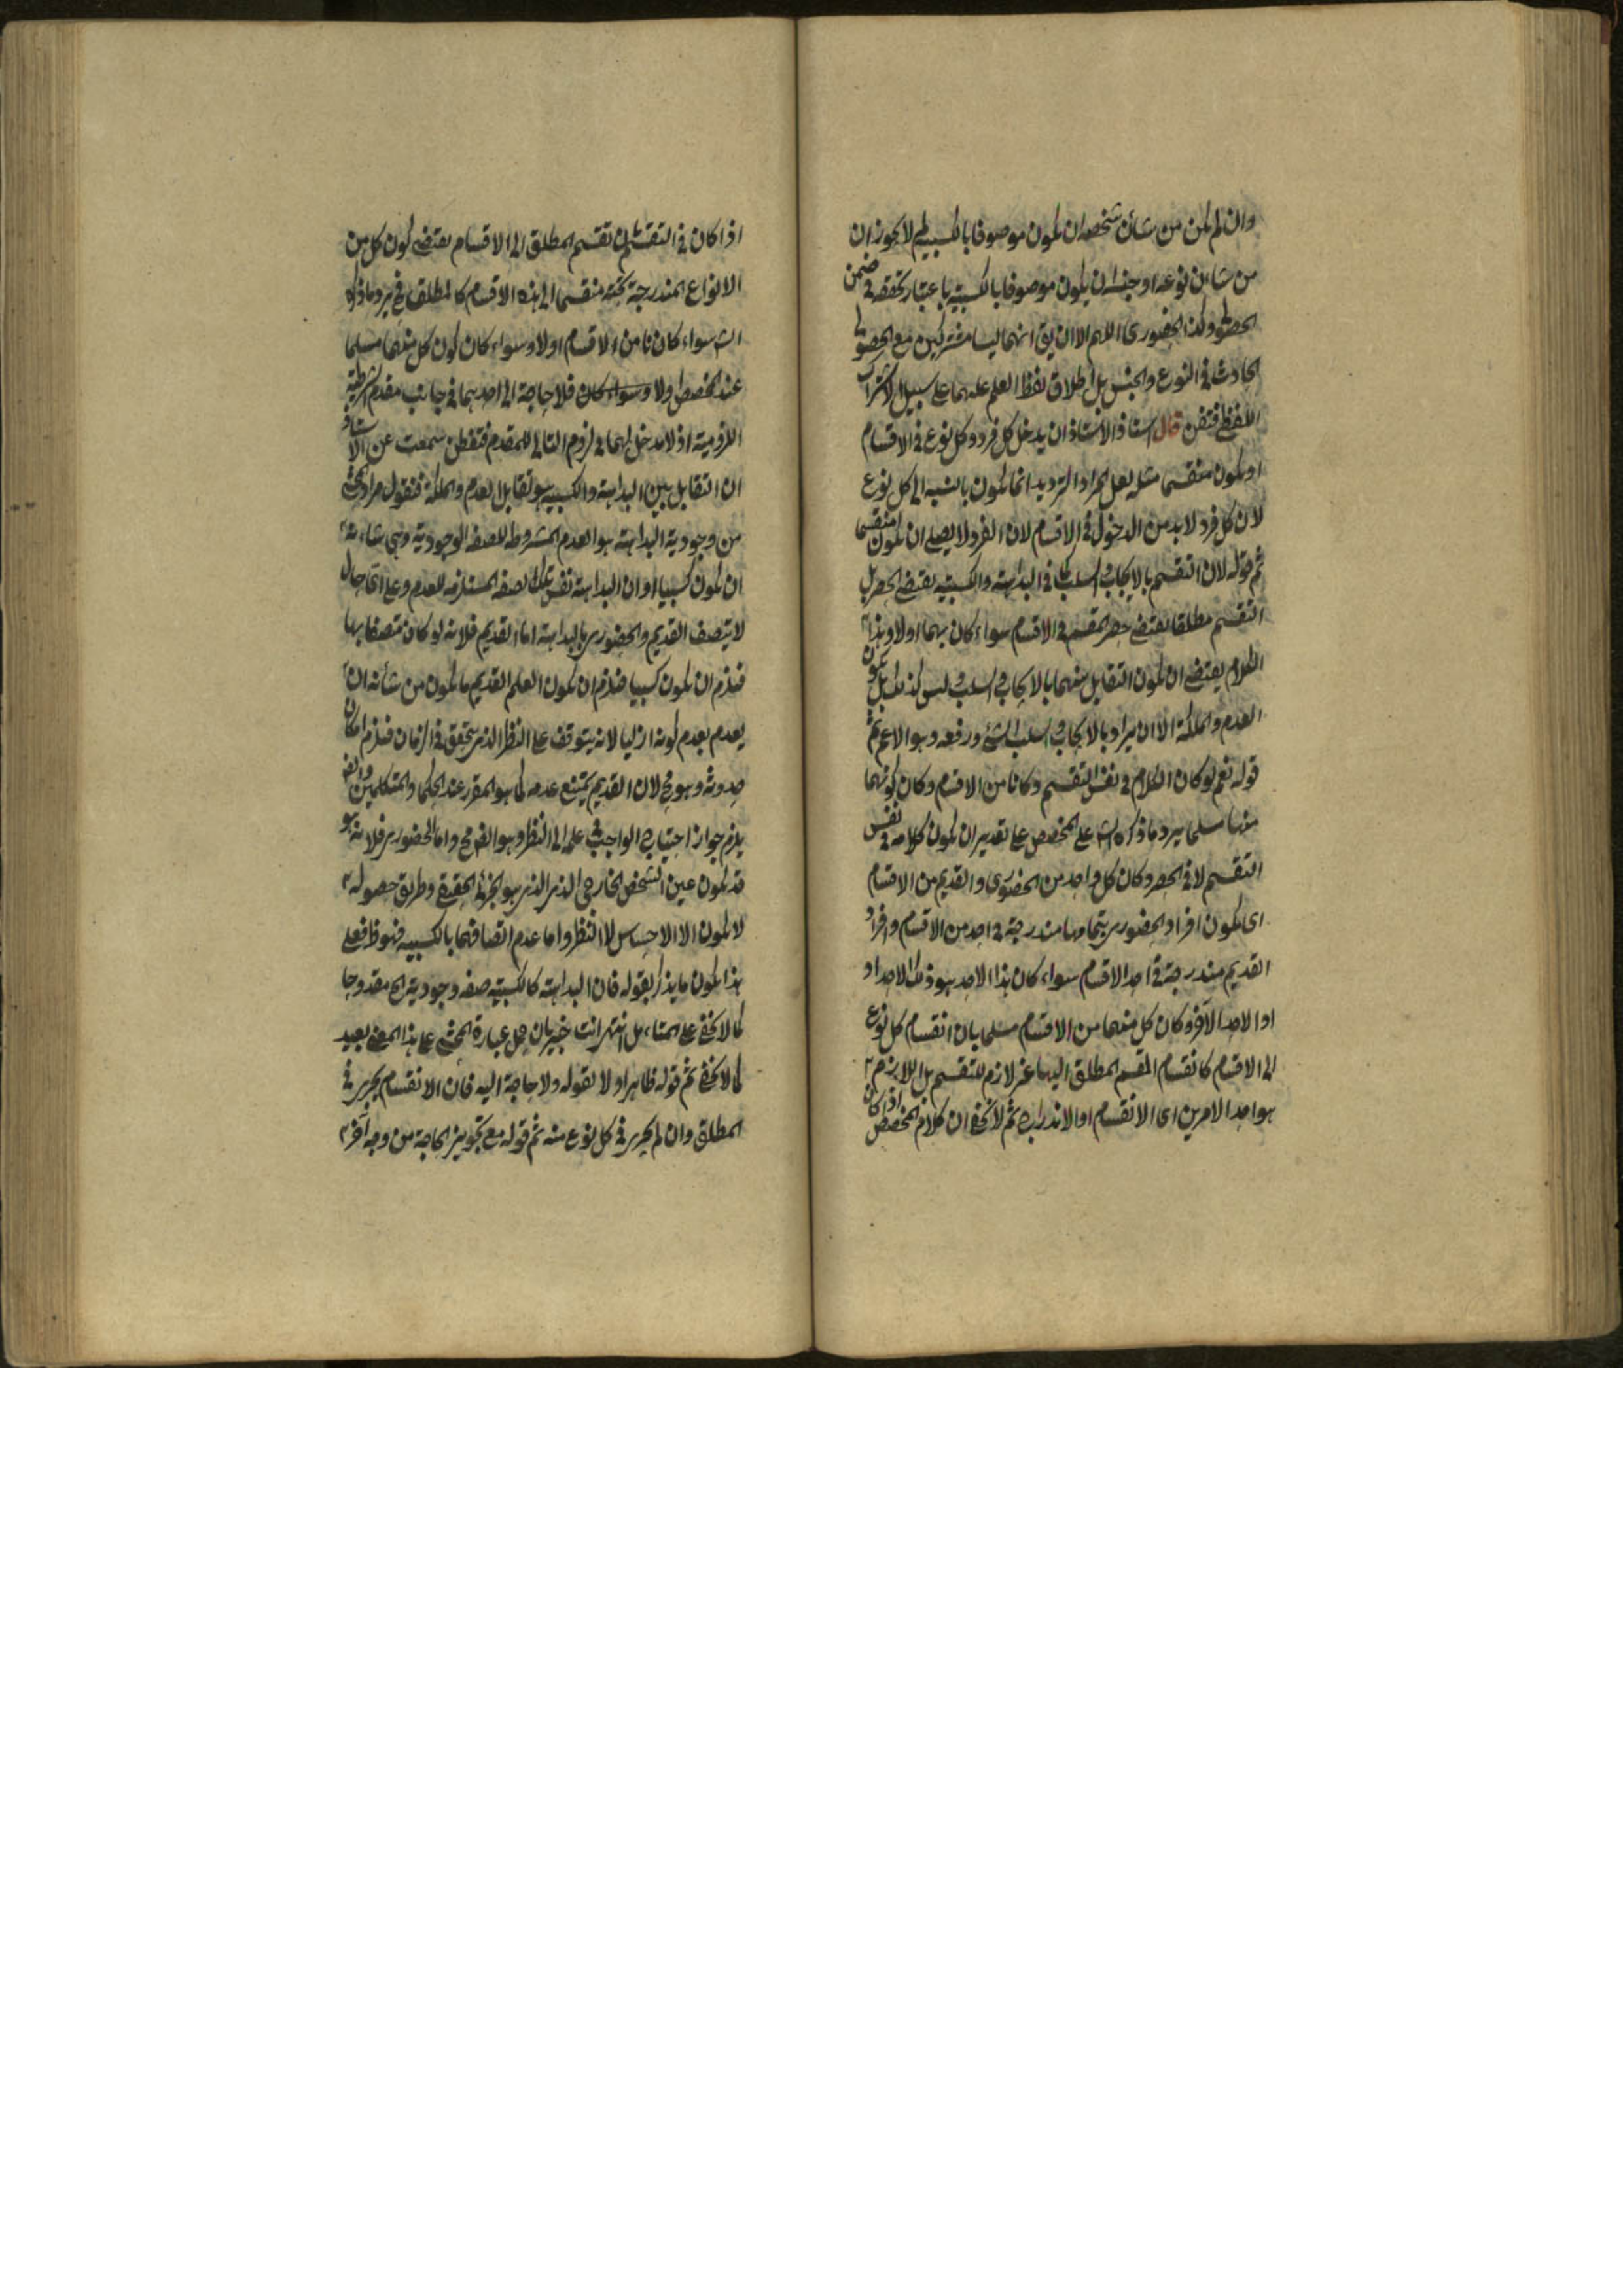 وان لم يكن من شان شخصه ان يكون موصوفا بالكسبية لم لا يجوز ان
من شان نوعه او جنسه ان يكون موصوفا بالكسبية باعتبار تحققه في ضمن
الحصولي وكذا الحضوري اللهم الا ان يق انهما ليسا مشتركين مع الحصولي
الحادث في النوع والجنس بل اطلاق لفظ العلم عليهما على سبيل الاشتراك
اللفظي فتفن قال استاذ الاستاذ ان يدخل كل فرد وكل نوع في الاقسام
او يكون منقسما مثله لعل المراد الترديد انما يكون بالنسبة الى كل نوع
لان كل فرد لابد من الدخول في الاقسام لان الفرد لا يصلح ان يكون منقسما
ثم قوله لان التقسيم بالايجاب والسلب كما في البداهة والكسبية يقتضي الحصر بل
التقسيم مطلقا يقتضي حصر المقسم في الاقسام سواء كان بهما اولا وهذا
الكلام يقتضي ان يكون التقابل بينهما بالايجاب والسلب وليس كذلك بل يكون
العدم والملكة الا ان يراد بالايجاب والسلب الشئ ورفعه وهو الاعم ثم
قوله نعم لو كان الكلام في نفس التقسيم وكانا من الاقسام وكان كونهما
منها مسلما يرد ما ذكره الش على المخصص على تقدير ان يكون كلامه في نفس
التقسيم لا في الحصر وكان كل واحد من الحضوري والقديم من الاقسام
اى يكون افراد الحضوري بتمامها مندرجة في احد من الاقسام وافراد
القديم مندرجة في احد الاقسام سواء كان هذا الاحد هو ذلك الاحد او
او الاحد الآخر وكان كل منهما من الاقسام مسلما بان انقسام كل نوع
الى الاقسام كانقسام المقسم المطلق اليها غير لازم للتقسيم بل اللازم
هو احد الامرين اى الانقسام او الاندراج ثم لا يخفى ان كلام المخصص اذا كان
اذا كان في التقسيم لان تقسيم المطلق الى الاقسام يقتضي كون كل من
الانواع المندرجة تحته منقسما الى هذه الاقسام كالمطلق فح يرد ما ذكره
الش سواء كانا من الاقسام اولا وسواء كان كون كل منهما مسلما
عند المخصص اولا وسواء كان فلا حاجة الى احدهما في جانب مقدم الشرطية
اللزومية اذ لا مدخل لهما في لزوم التالي للمقدم فتفطن سمعت عن الاستاذ
ان التقابل بين البداهة والكسبية هو تقابل العدم والملكة فنقول مراد المحشي
من وجودية البداهة هو العدم المشروط للصفة الوجودية وهي شانه
ان يكون كسبيا او ان البداهة نفس تلك الصفة المستلزمة للعدم وعلى اى حال
لا يتصف القديم والحضوري بالبداهة اما القديم فلانه لو كان متصفا بها
فيلزم ان يكون كسبيا فيلزم ان يكون العلم القديم ما يكون من شأنه ان
يعدم بعدم كونه ازليا لانه يتوقف على النظر الذي يتحقق في الزمان فيلزم امكان
حدوثه وهو مح لان القديم يمتنع عدمه كما هو المقرر عند الحكما والمتكلمين وايضا
يلزم جواز احتياج الواجب في علمه الى النظر وهو ايضا مح واما الحضوري فلانه هو
قد يكون عين الشخص الخارجي الذي هو الجزئي الحقيقي وطريق حصوله
لا يكون الا الاحساس لا النظر واما عدم اتصافهما بالكسبية فهو ظ فعلى
هذا يكون ما يذكر بقوله فان البداهة كالكسبية صفة وجودية الخ مقدوحا
كما لا يخفى على المتامل انتهى انت خبير بان حمل عبارة المحشي على هذا المعنى بعيد
كما لا يخفى ثم قوله ظاهرا ولا بقوله ولا حاجة اليه فان الانقسام يجري في
المطلق وان لم يجر في كل نوع منه ثم قوله مع تجويز الحاجة من وجه آخر